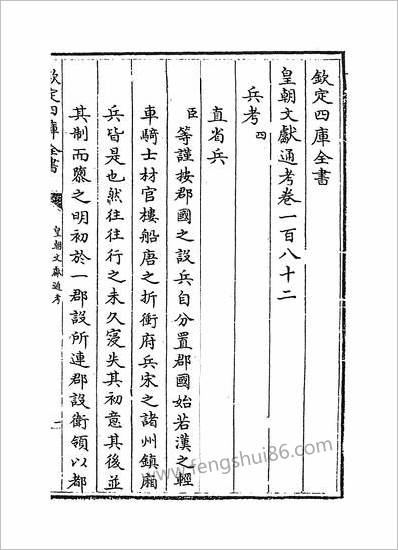 欽定四庫全書
皇朝文獻通考卷一百八十二
兵考四
直省兵
臣等謹按郡國之設兵自分置郡國始若漢之輕
車騎士材官樓船唐之折衝府兵宋之諸州鎮廂
兵皆是也然往往行之未久寖失其初意其後並
其制而隳之明初於一郡設所連郡設衛領以都
欽定四庫全書
皇朝文獻通考
一
www.fengshui86.com